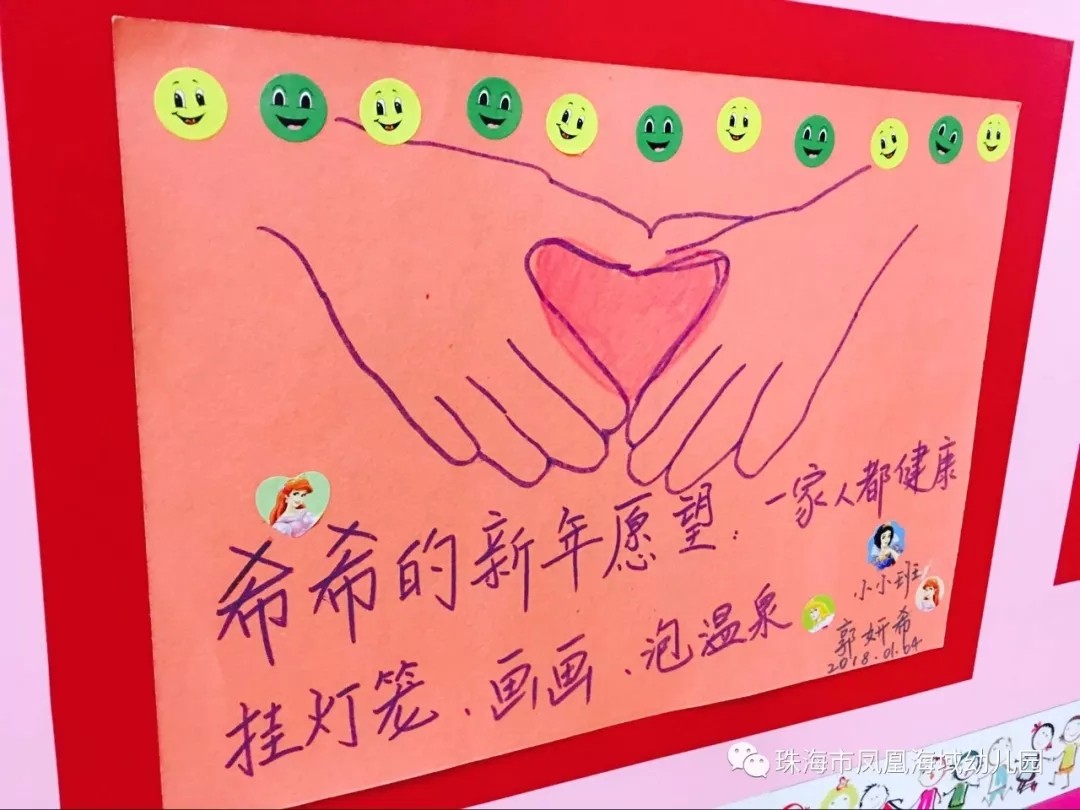 希希的新年愿望：一家人都健康
挂灯笼、画画、泡温泉
小小班
郭妍希
2018.01.04
珠海市凤凰海域幼儿园